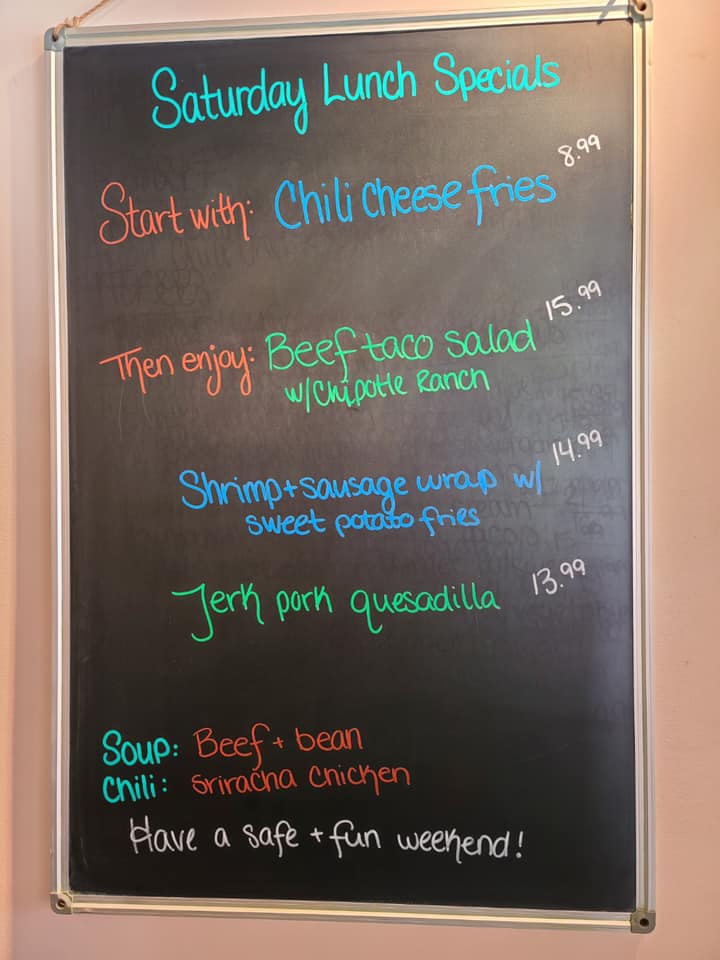 Saturday Lunch Specials
Start with: Chili cheese fries 8.99
Then enjoy: Beef taco salad 15.99
w/Chipotle Ranch
Shrimp + sausage wrap w/ 14.99
sweet potato fries
Jerk pork quesadilla 13.99
Soup: Beef + bean
Chili: Sriracha Chicken
Have a safe + fun weekend!